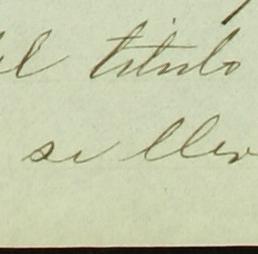 el titulo
se llev